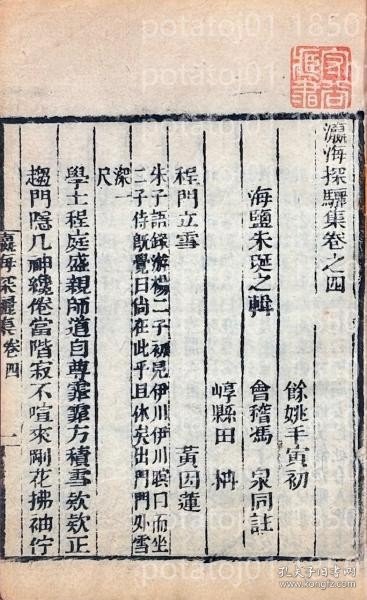 瀛海探驪集卷之四
餘姚毛寅初
海鹽朱埏之輯 會稽馮 泉同註
崞縣田 枬
程門立雪 黃因蓮
朱子語錄游楊二子初見伊川伊川瞑目而坐
二子侍旣覺曰尙在此乎且休矣出門門外雪
深一
尺
學士程庭盛親師道自尊霏霏方積雪欸欸正
趨門隱几神纔倦當階寂不喧來剛花拂袖佇
瀛海探驪集 卷四 一
potatoj01 1850
孔夫子旧书网